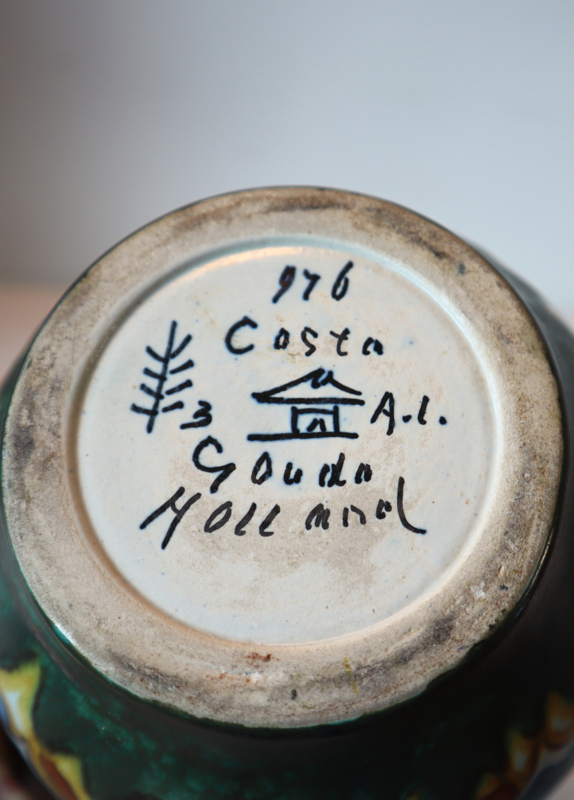 976
Costa
3 A.L.
Gouda
Holland